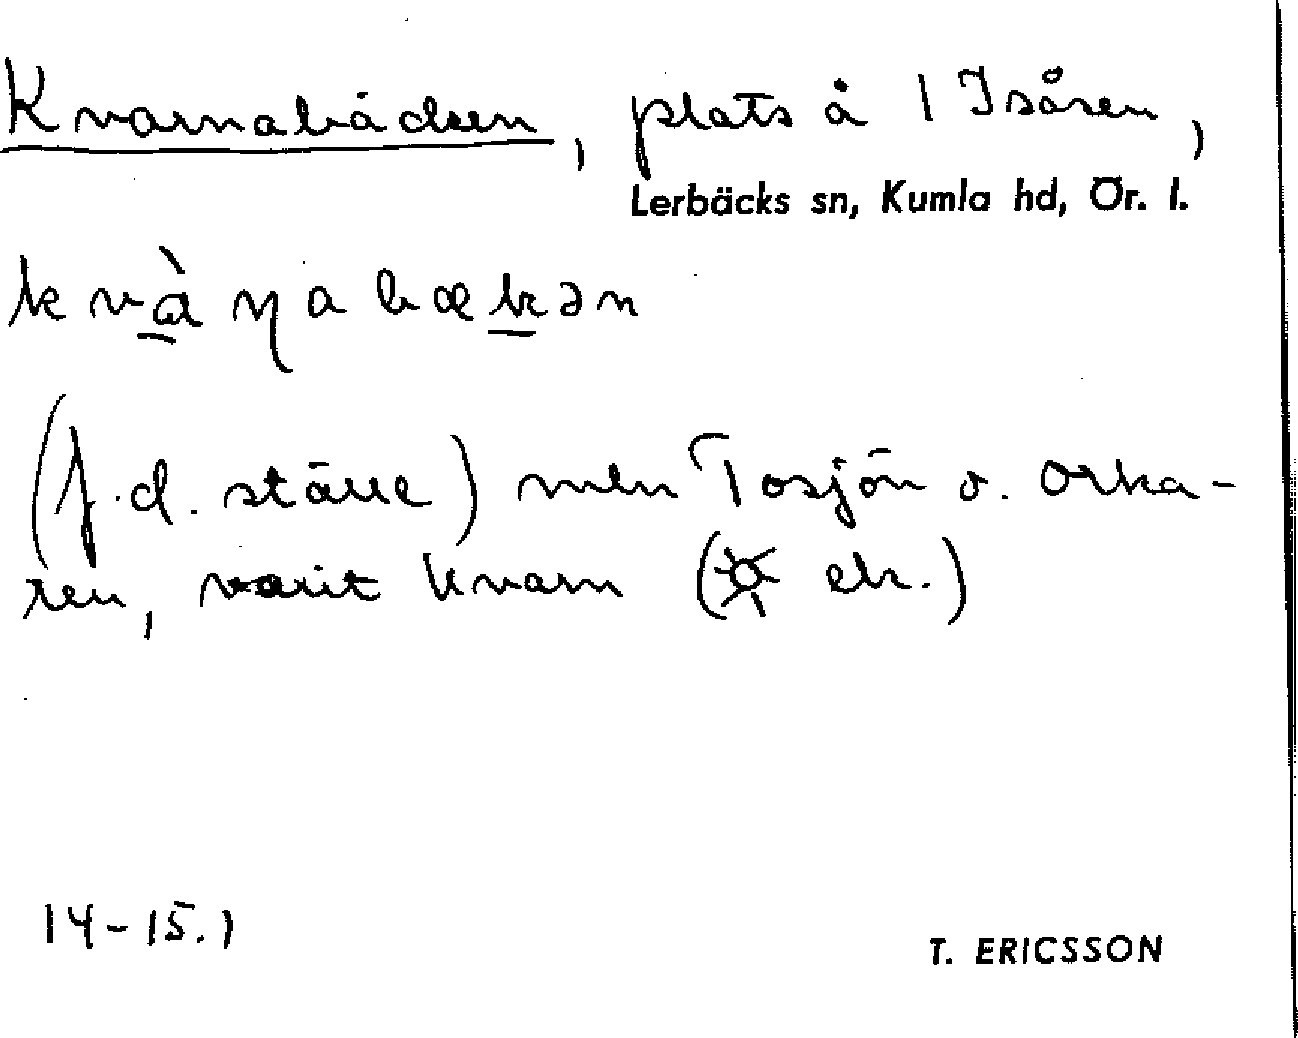 Kvarnabäcken, plats å 1 Isåsen,
Lerbäcks sn, Kumla hd, Ör. l.
kvàɳabækən
(f.d. ställe) mln Tosjön o. Orka-
ren, varit kvarn (☼ elr.)
14-15.)
T. ERICSSON